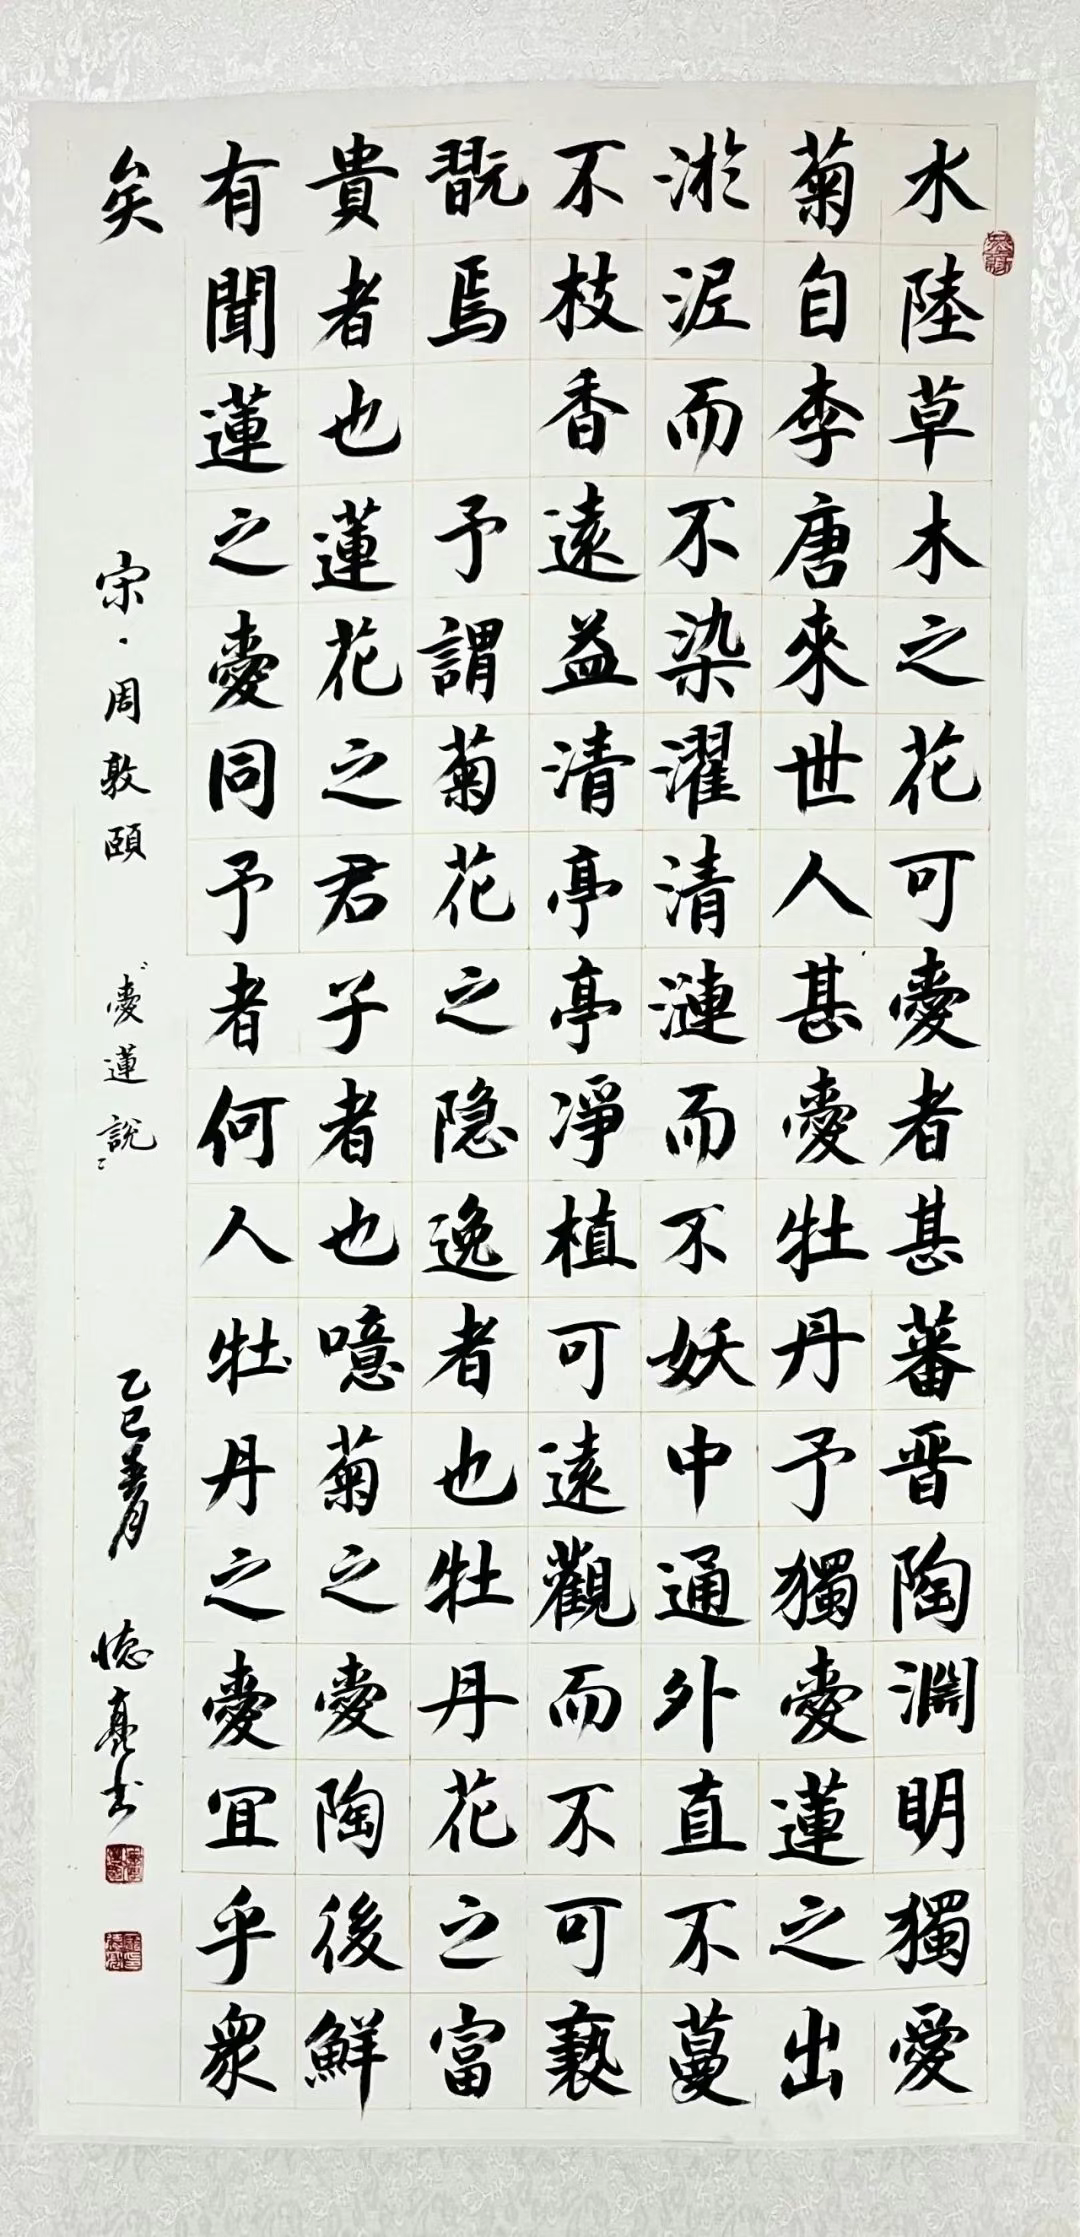 水陸草木之花可愛者甚蕃晋陶淵明獨愛
菊自李唐來世人甚愛牡丹予獨愛蓮之出
淤泥而不染濯清漣而不妖中通外直不蔓
不枝香遠益清亭亭淨植可遠觀而不可褻
翫焉 予謂菊花之隐逸者也牡丹花之富
貴者也蓮花之君子者也噫菊之愛陶後鮮
有聞蓮之愛同予者何人牡丹之愛宜乎衆
矣
宋·周敦頤 "愛蓮說"
乙巳 亮书